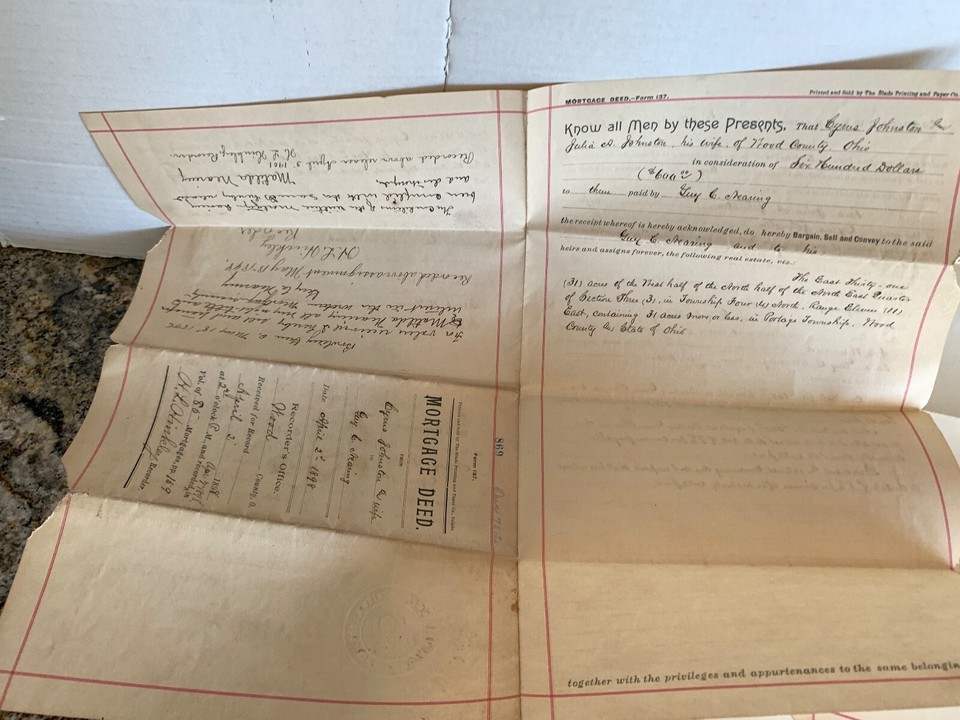 MORTGAGE DEED.—Form 137.
Printed and Sold by The Blade Printing and Paper Co.
Know all Men by these Presents, That Cyrus Johnston &
Julia A. Johnston, his wife, of Wood County, Ohio
in consideration of Six Hundred Dollars
($600 00)
to them paid by Guy C. Nearing
the receipt whereof is hereby acknowledged, do hereby Bargain, Sell and Convey to the said
Guy C. Nearing and to his
heirs and assigns forever, the following real estate, viz:
The East Thirty-one
(31) acres of the West half of the North half of the North East Quarter
of Section Three (3), in Township Four (4) North, Range Eleven (11)
East, containing 31 acres more or less, in Portage Township, Wood
County & State of Ohio.
together with the privileges and appurtenances to the same belonging
The conditions of the within mortgage having
been complied with the same is hereby
and discharged.
Matilda Nearing
Recorded above release April 3, 1901
Recorder
Bowling Green O. May 18, 189
For value received I hereby
to Matilda Nearing all my
interest in the within Mortgage
Guy C. Nearing
Recorded above assignment May 18, 189
Recorder
869
Form 137.
Printed and Sold by The Blade Printing and Paper Co., Toledo
MORTGAGE DEED.
FROM
Cyrus Johnston & wife
TO
Guy C. Nearing
Date April 2d 1898
Recorder's Office,
Wood County, O.
Received for Record
April 2 1898
at 2 o'clock P.M., and recorded
Vol. of 85 Mortgages, pp. 169
Recorder.